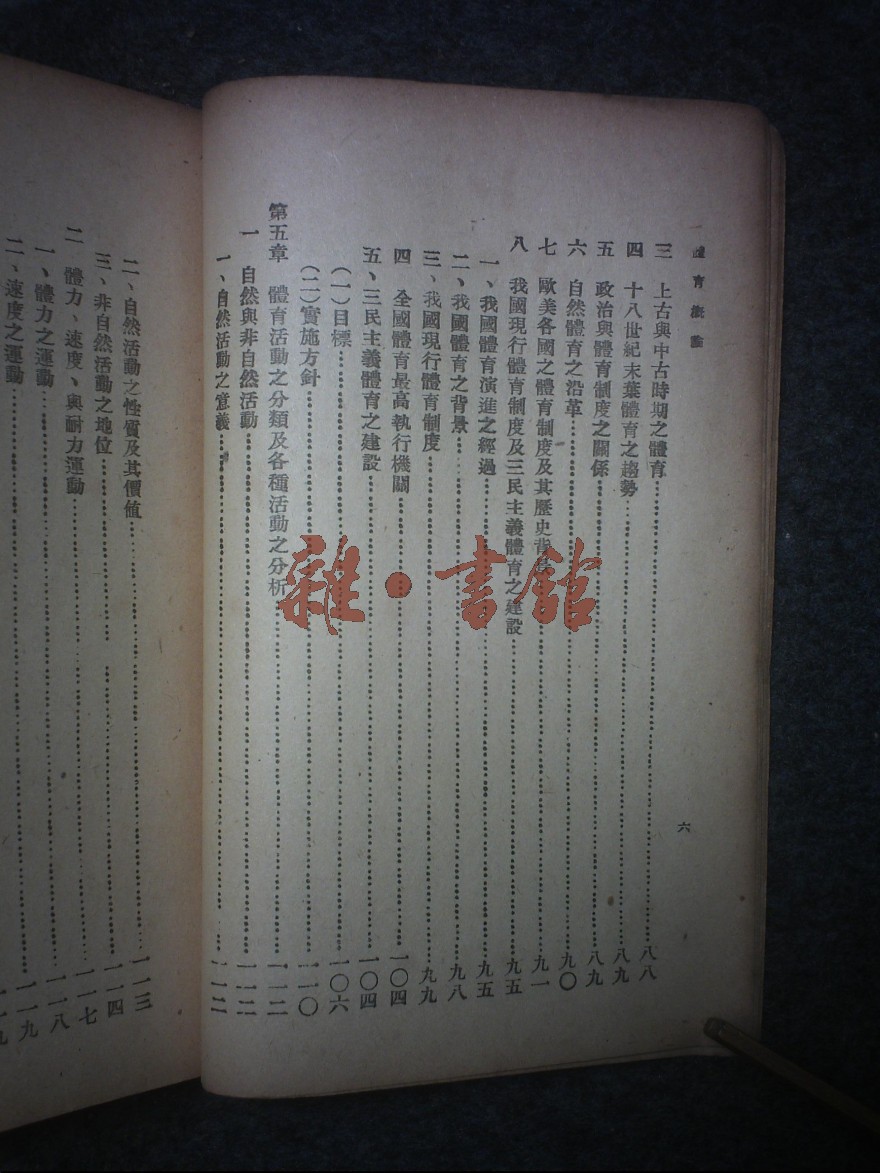 體育概論
六
三 上古與中古時期之體育……八八
四 十八世紀末葉體育之趨勢……八九
五 政治與體育制度之關係……八九
六 自然體育之沿革……九〇
七 歐美各國之體育制度及其歷史背景……九一
八 我國現行體育制度及三民主義體育之建設……九五
一、我國體育演進之經過……九五
二、我國體育之背景……九八
三、我國現行體育制度……九九
四 全國體育最高執行機關……一〇四
五、三民主義體育之建設……一〇四
(一)目標……一〇六
(二)實施方針……一一〇
第五章 體育活動之分類及各種活動之分析……一一二
一 自然與非自然活動……一一二
一、自然活動之意義……一一二
二、自然活動之性質及其價值……一一三
三、非自然活動之地位……一一四
二 體力、速度、與耐力運動……一一七
一、體力之運動……一一八
二、速度之運動……一一九
雜·書館